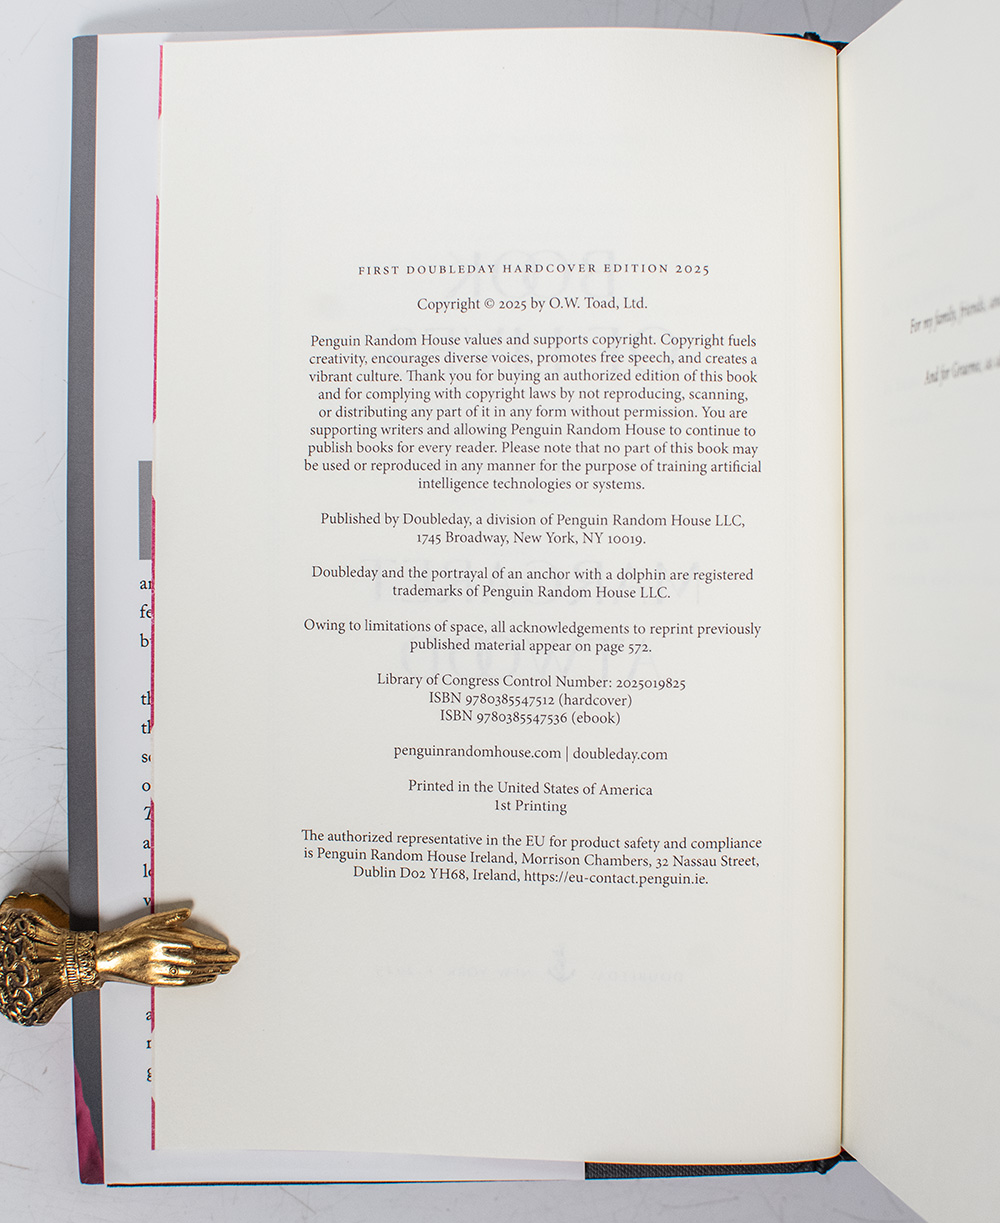 FIRST DOUBLEDAY HARDCOVER EDITION 2025
Copyright © 2025 by O.W. Toad, Ltd.
Penguin Random House values and supports copyright. Copyright fuels
creativity, encourages diverse voices, promotes free speech, and creates a
vibrant culture. Thank you for buying an authorized edition of this book
and for complying with copyright laws by not reproducing, scanning,
or distributing any part of it in any form without permission. You are
supporting writers and allowing Penguin Random House to continue to
publish books for every reader. Please note that no part of this book may
be used or reproduced in any manner for the purpose of training artificial
intelligence technologies or systems.
Published by Doubleday, a division of Penguin Random House LLC,
1745 Broadway, New York, NY 10019.
Doubleday and the portrayal of an anchor with a dolphin are registered
trademarks of Penguin Random House LLC.
Owing to limitations of space, all acknowledgements to reprint previously
published material appear on page 572.
Library of Congress Control Number: 2025019825
ISBN 9780385547512 (hardcover)
ISBN 9780385547536 (ebook)
penguinrandomhouse.com | doubleday.com
Printed in the United States of America
1st Printing
The authorized representative in the EU for product safety and compliance
is Penguin Random House Ireland, Morrison Chambers, 32 Nassau Street,
Dublin D02 YH68, Ireland, https://eu-contact.penguin.ie.
For my family, friends,
And for Graeme, as